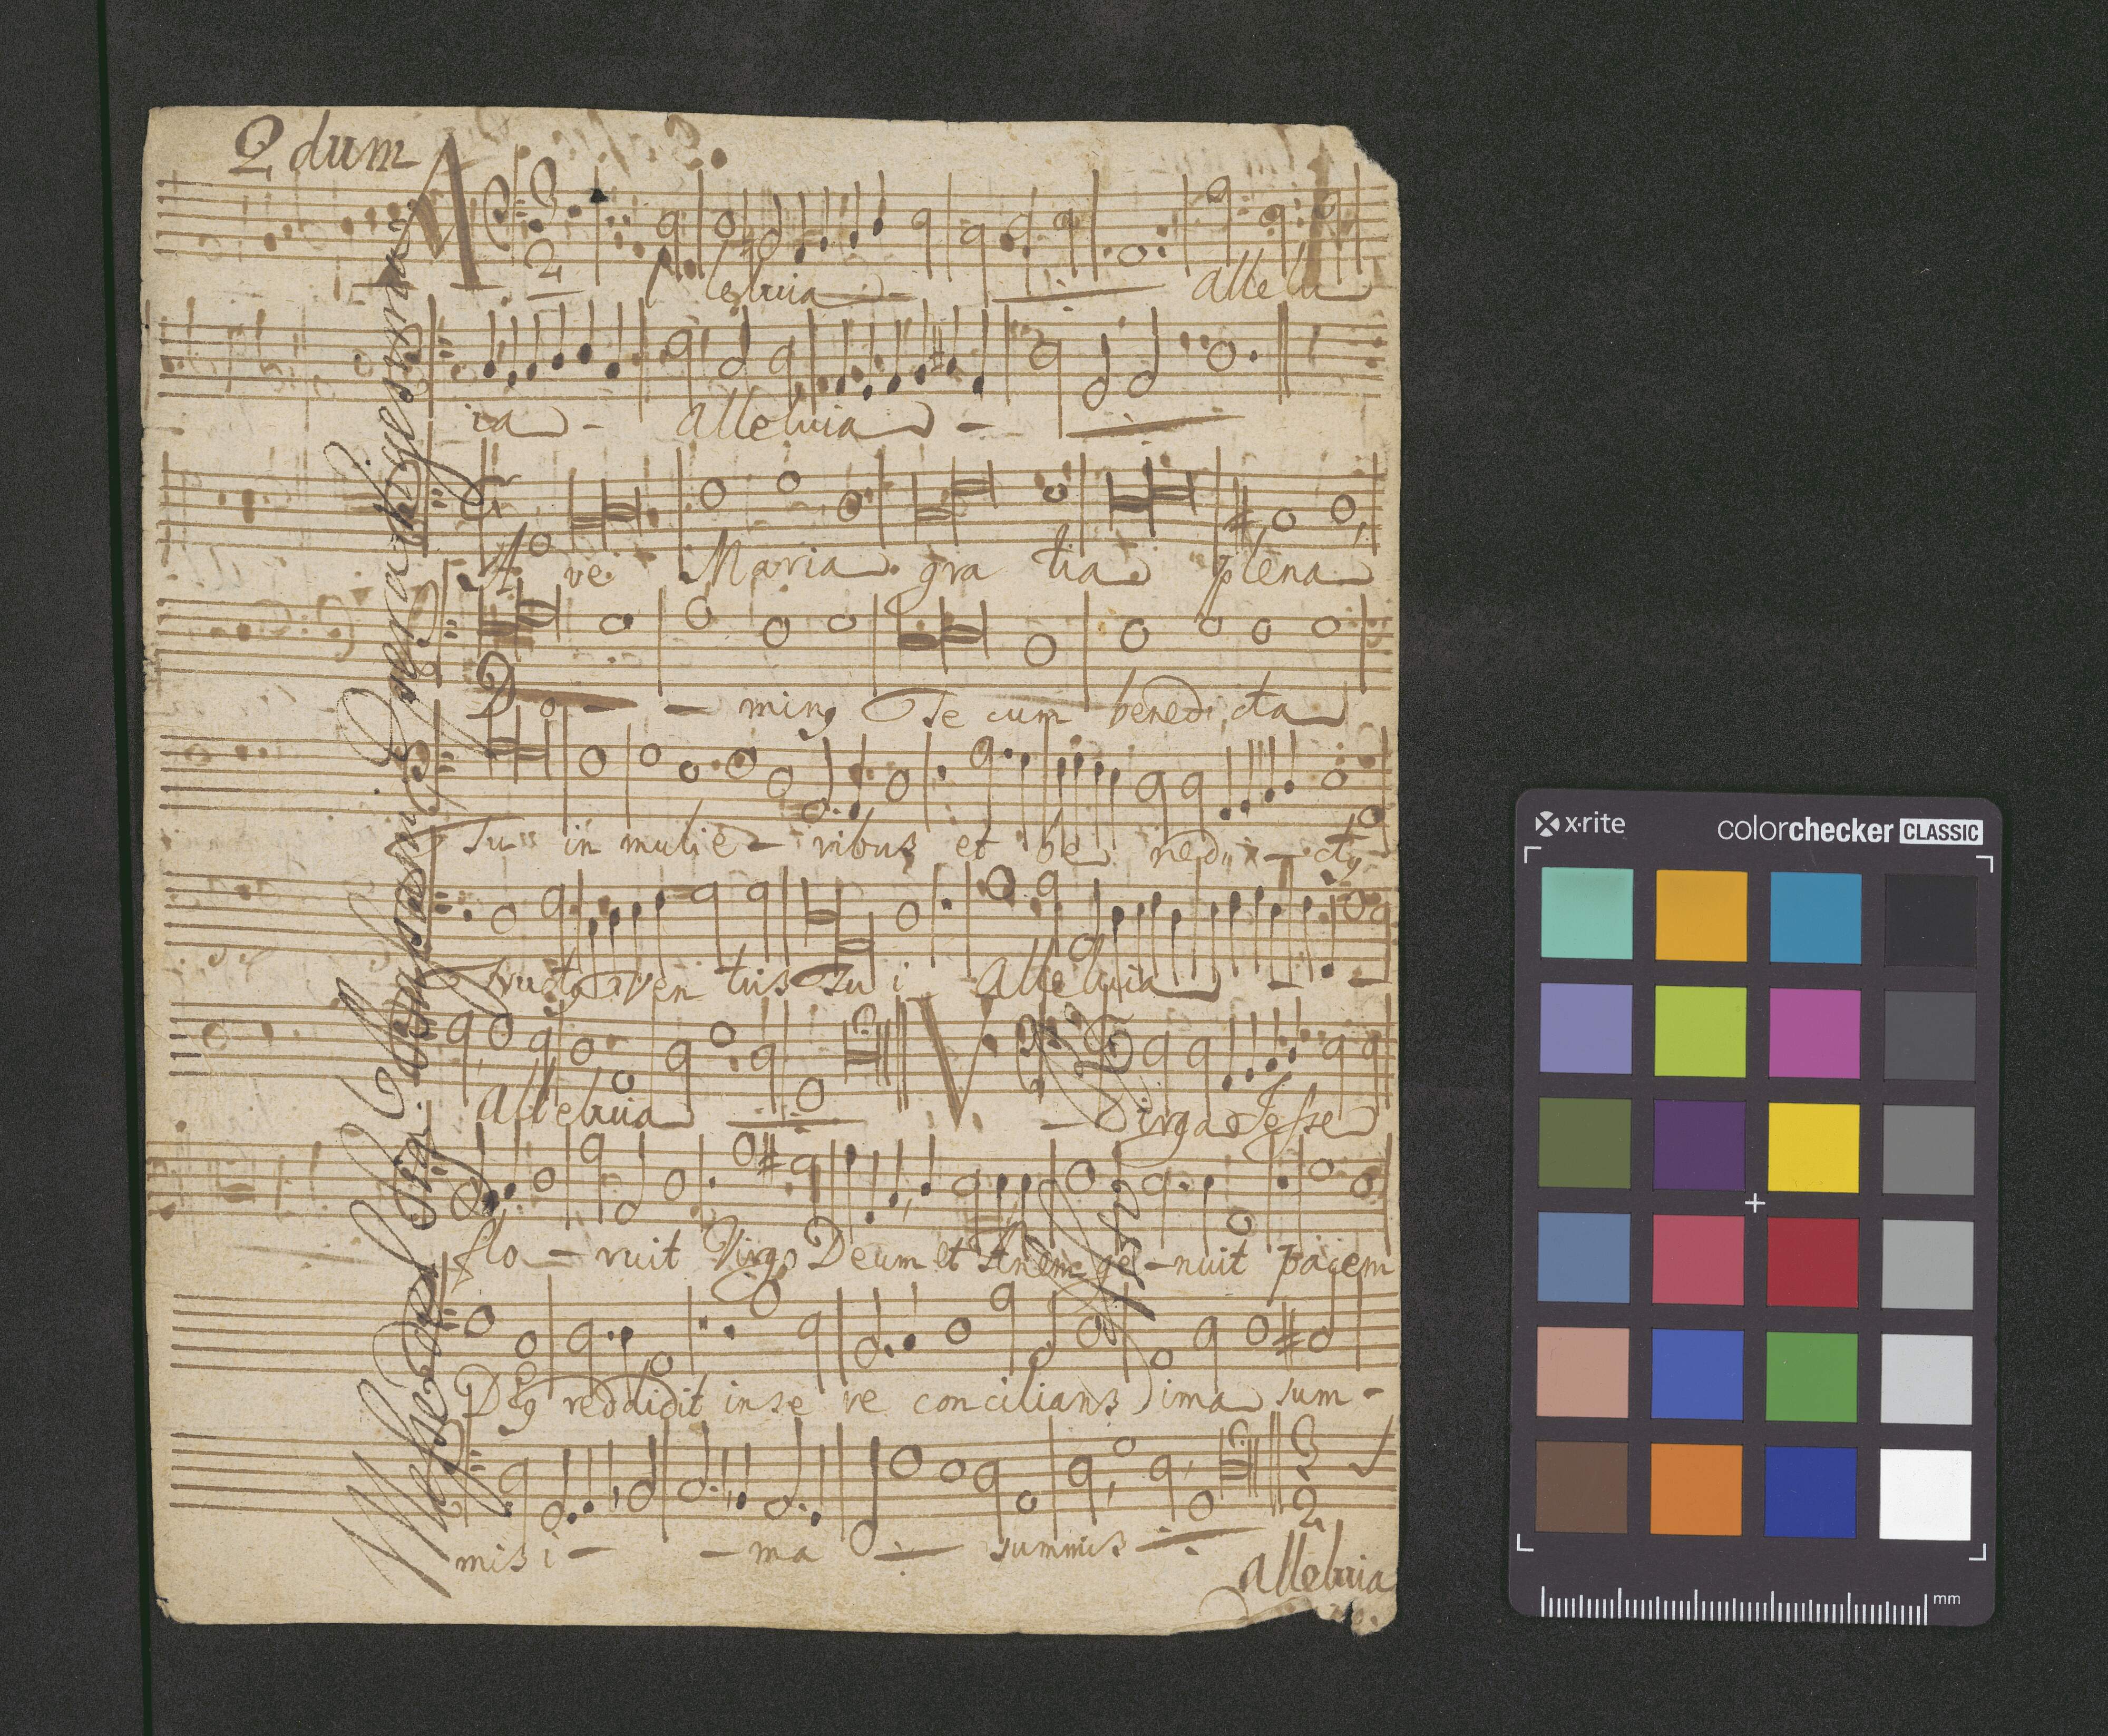 2dum
A lleluia allelu
ia - alleluia -
Ave Maria gra tia plena
Do - - ming Te cum benedicta
Tu in mulie - ribus et be nedi - ctg
fructg ven tris Tu i Alleluia - -
alleluia V. - Virga Jesse
flo - ruit Virgo Deum et ge - nuit pacem
Dg reddidit in se re concilians ima sum -
mis i - - ma summis
alleluia
x·rite
colorchecker CLASSIC
mm